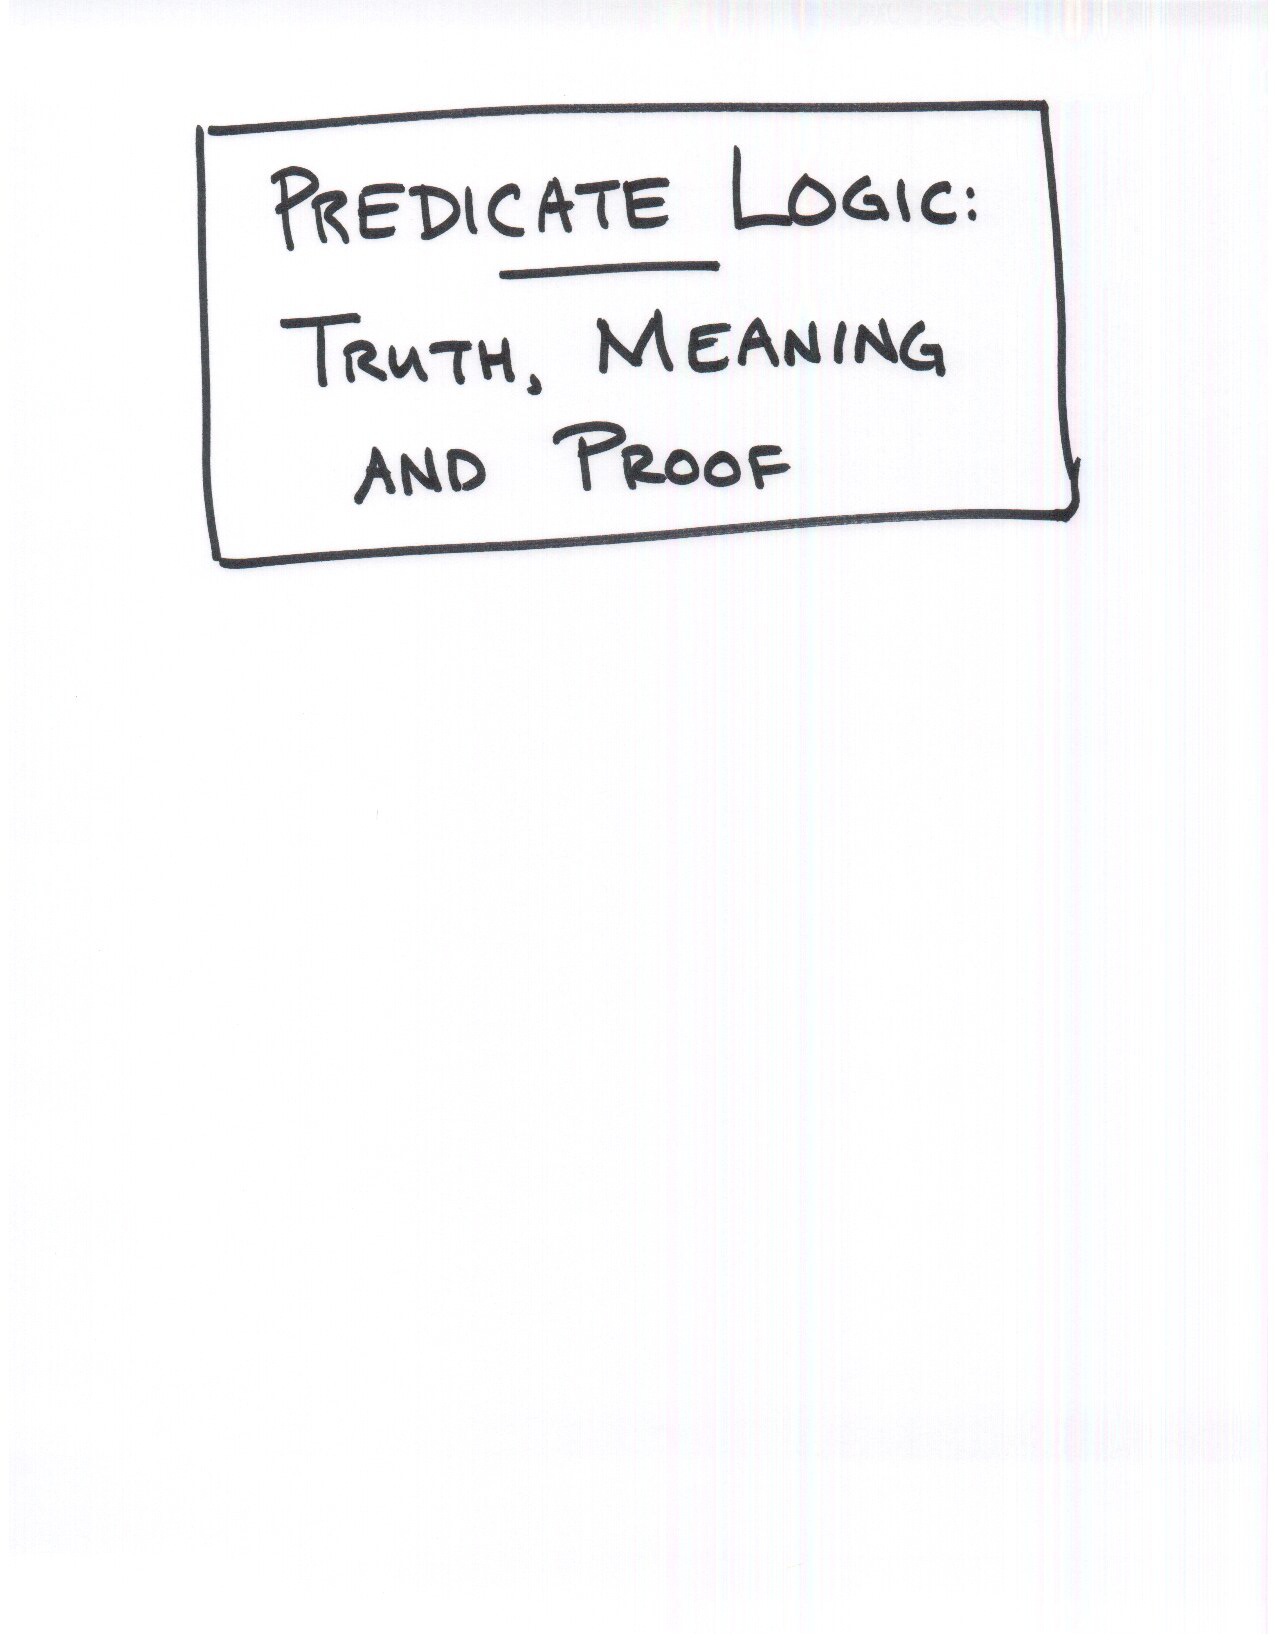 PREDICATE LOGIC:
TRUTH, MEANING
AND PROOF